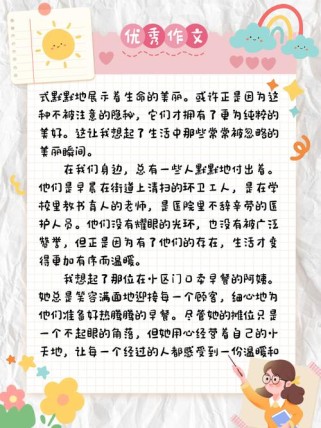 优秀作文
式默默地展示着生命的美丽。或许正是因为这
种不被注意的隐秘，它们才拥有了更为纯粹的
美好。这让我想起了生活中那些常常被忽略的
美丽瞬间。
在我们身边，总有一些人默默地付出着。
他们是早晨在街道上清扫的环卫工人，是在学
校里教书育人的老师，是医院里不辞辛劳的医
护人员。他们没有耀眼的光环，也没有被广泛
赞誉，但正是因为有了他们的存在，生活才变
得更加有序而温暖。
我想起了那位在小区门口卖早餐的阿姨。
她总是笑容满面地迎接每一个顾客，细心地为
他们准备好热腾腾的早餐。尽管她的摊位只是
一个不起眼的角落，但她用心经营着自己的小
天地，让每一个经过的人都感受到一份温暖和